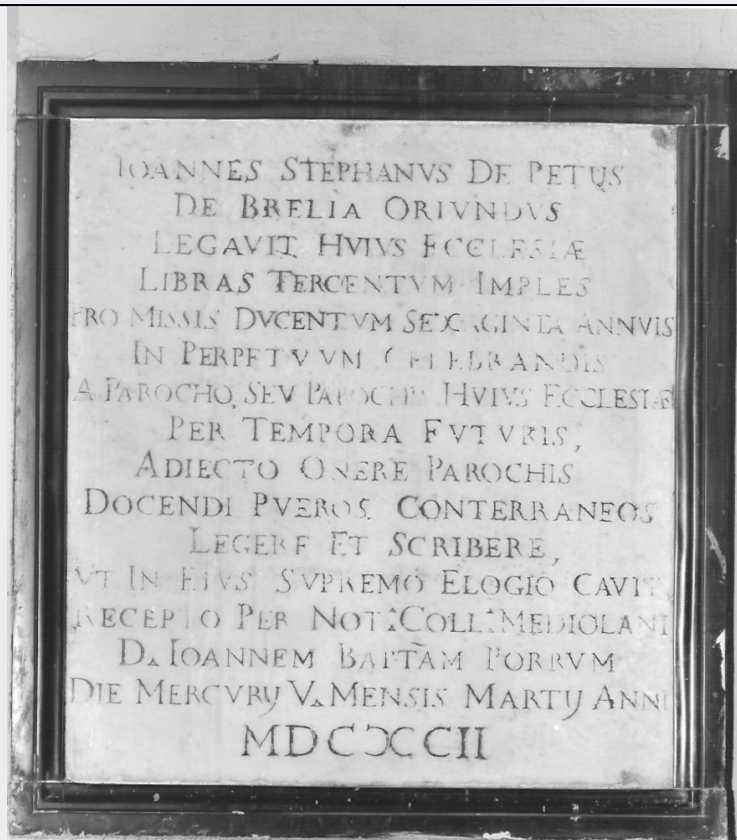 IOANNES STEPHANVS DE PETIJS
DE BRELIA ORIVNDVS
LEGAVIT HVIVS ECCLESIÆ
LIBRAS TERCENTVM IMPLES
PRO MISSIS DVCENTVM SEXAGINTA ANNVIS
IN PERPETVVM CELEBRANDIS
A PAROCHO, SEV PAROCHIS HVIVS ECCLESIÆ
PER TEMPORA FVTVRIS,
ADIECTO ONERE PAROCHIS
DOCENDI PVEROS CONTERRANEOS
LEGERE ET SCRIBERE,
VT IN EIVS SVPREMO ELOGIO CAVIT
RECEPTO PER NOT. COLL. MEDIOLANI
D. IOANNEM BAPTAM PORRVM
DIE MERCVRIJ V. MENSIS MARTIJ ANNI